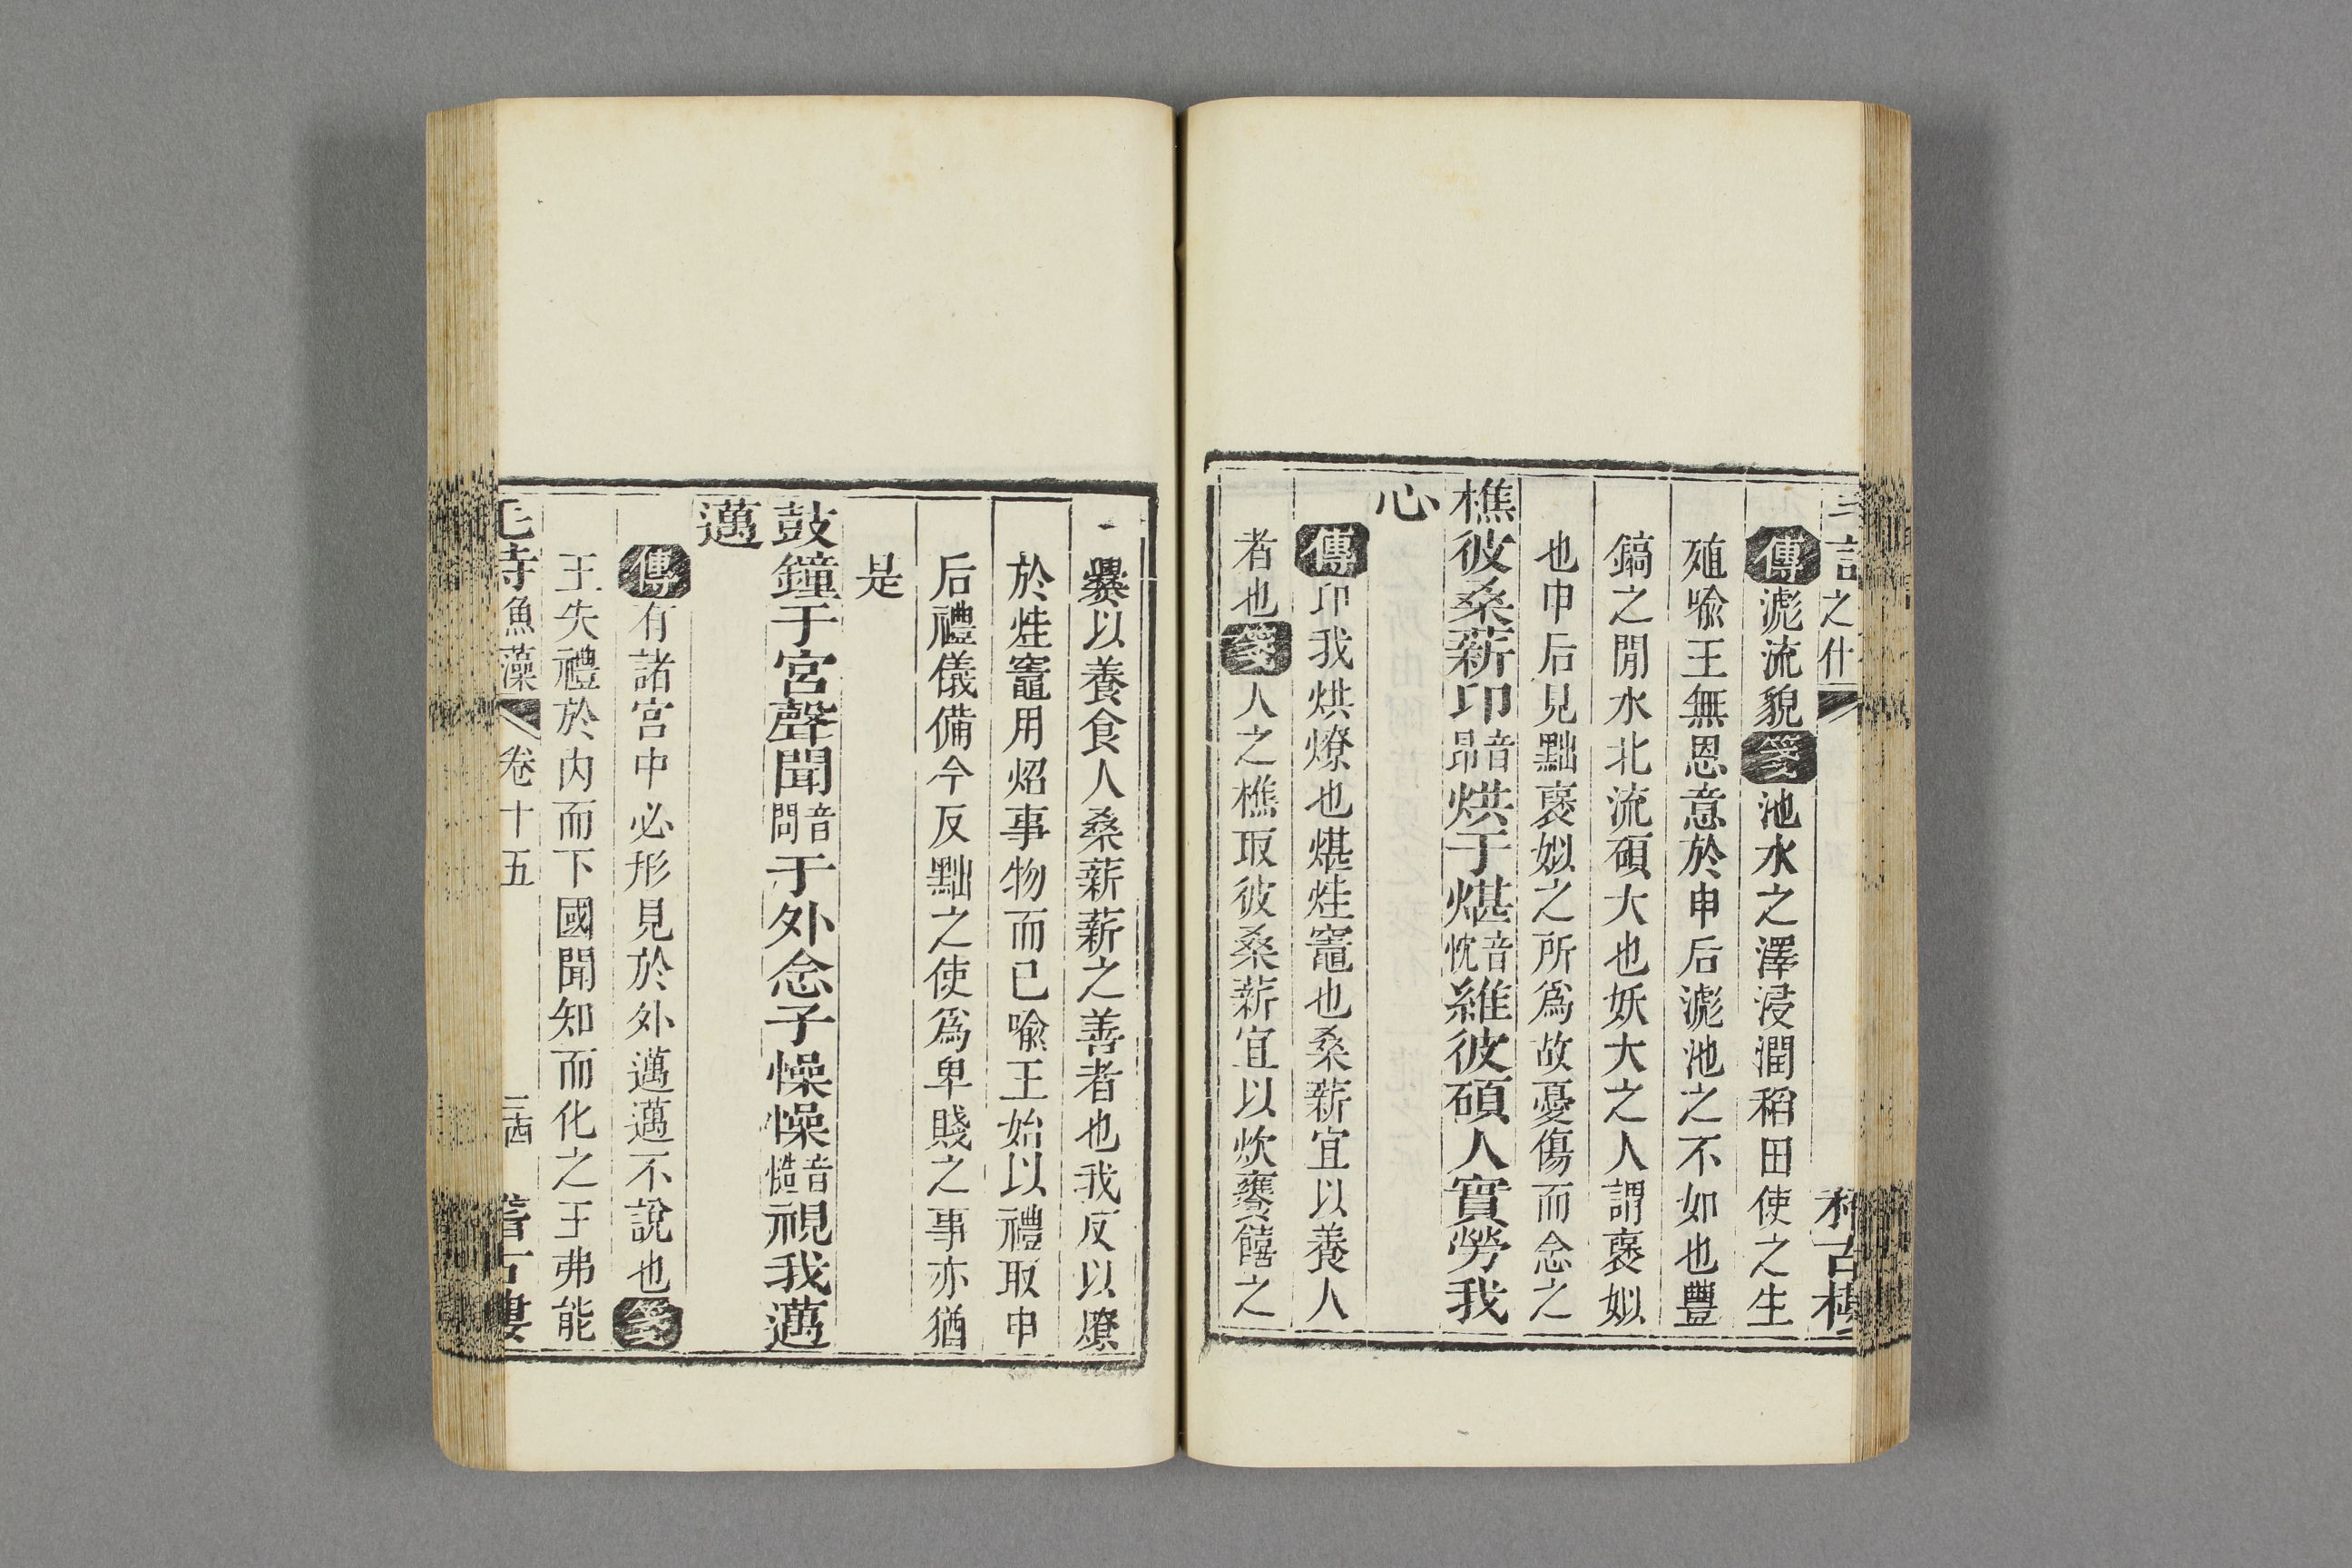 之什
傳滮流貌箋池水之澤浸潤稻田使之生
殖喻王無恩意於申后滮池之不如也豐
鎬之閒水北流碩大也妖大之人謂褒姒
也申后見黜褒姒之所爲故憂傷而念之
樵彼桑薪卬音昻烘于煁音忱維彼碩人實勞我
心
傳卬我烘燎也煁烓竈也桑薪宜以養人
者也箋人之樵取彼桑薪宜以炊饔饎之
爨以養食人桑薪薪之善者也我反以燎
於烓竈用炤事物而已喻王始以禮取申
后禮儀備今反黜之使爲卑賤之事亦猶
是
鼓鐘于宮聲聞音問于外念子懆懆音慥視我邁
邁
傳有諸宮中必形見於外邁邁不說也箋
王失禮於内而下國聞知而化之王弗能
魚藻 卷十五